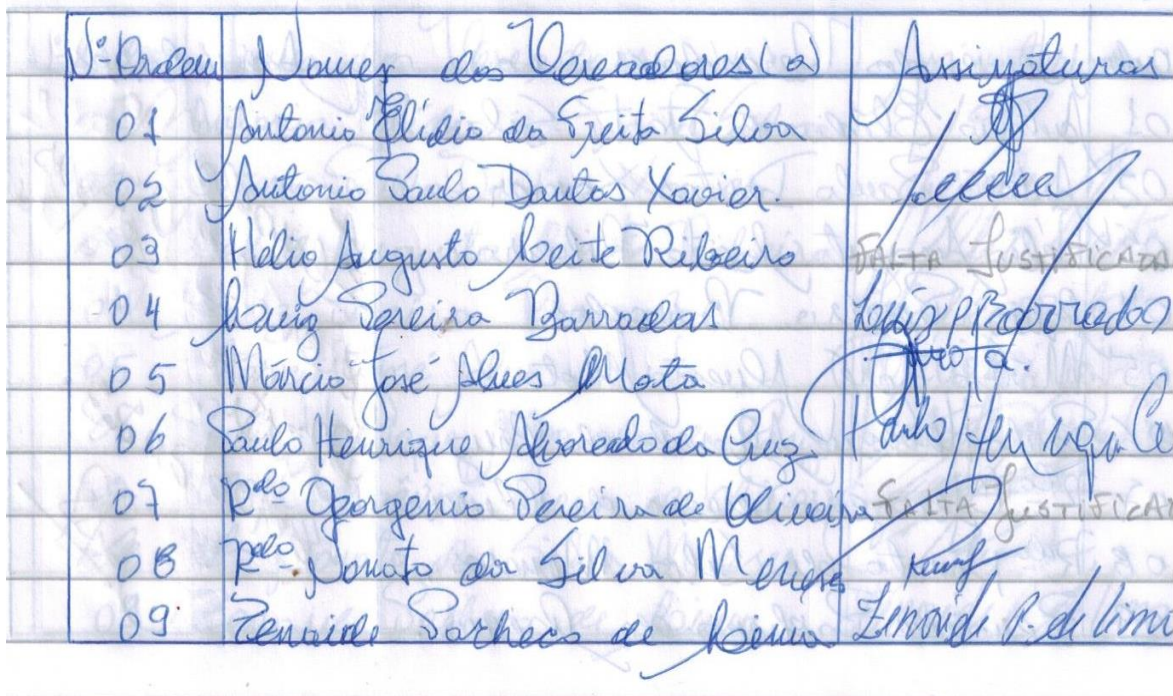 Nº Ordem Nomes dos Vereadores(a) Assinaturas
01 Antonio Elidio da Freita Silva
02 Antonio Paulo Dantas Xavier.
03 Hélio Augusto Leite Ribeiro FALTA JUSTIFICADA
04 Luiz Pereira Barradas Luiz P Barradas
05 Márcio José Alves Mota Mota.
06 Paulo Henrique Alvoredo da Cruz Paulo Henrique C
07 Rdo Georgenio Pereira de Oliveira FALTA JUSTIFICAD
08 Rdo Donato da Silva Meneses
09 Zenaide Pacheco de Lima Zenaide P. de Lima